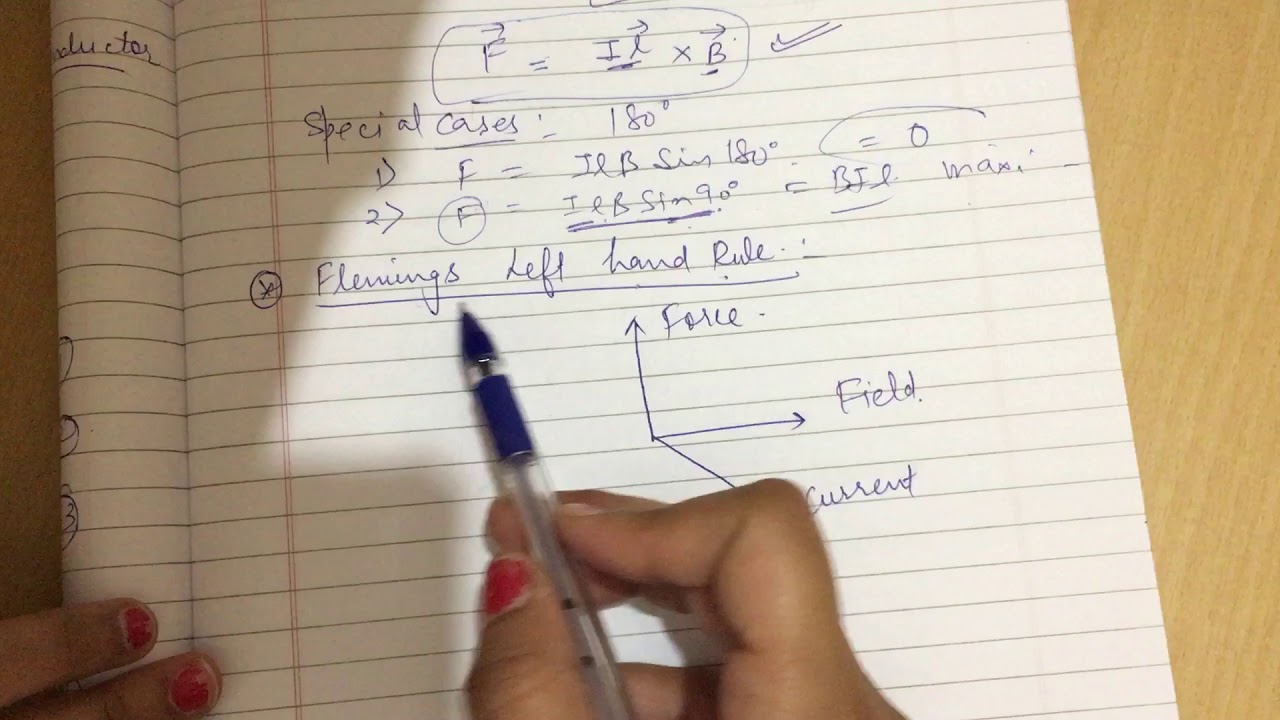 ductor
F⃗ = I l⃗ × B⃗
Special cases :- 180°
1) F = IlB Sin 180° = 0
2) F = IlB Sin 90° = BIl maxi
Flemings Left hand Rule :-
Force.
Field.
current
3